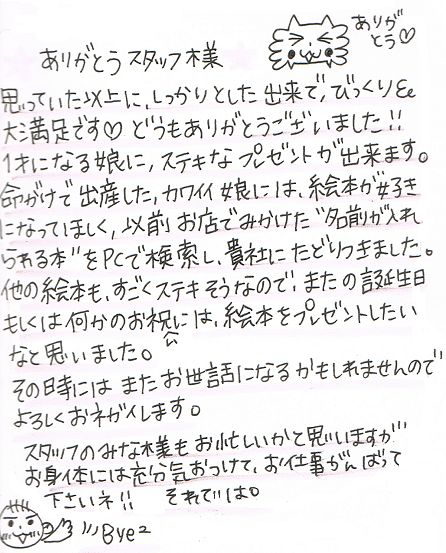 ありがとう♡
ありがとうスタッフ様
思っていた以上に、しっかりとした出来で、びっくり&
大満足です♡ どうもありがとうございました!!
1才になる娘に、ステキなプレゼントが出来ます。
命がけで出産した、カワイイ娘には、絵本が好き
になってほしく、以前お店でみかけた"名前が入れ
られる本"をPCで検索し、貴社にたどりつきました。
他の絵本も、すごくステキそうなので、またの誕生日
もしくは何かのお祝には、絵本をプレゼントしたい
なと思いました。
その時には またお世話になるかもしれませんので
よろしくおネガイします。
スタッフのみな様も お忙しいかと思いますが
お身体には充分気おつけて、お仕事がんばって
下さいネ!! それでは。
Bye2